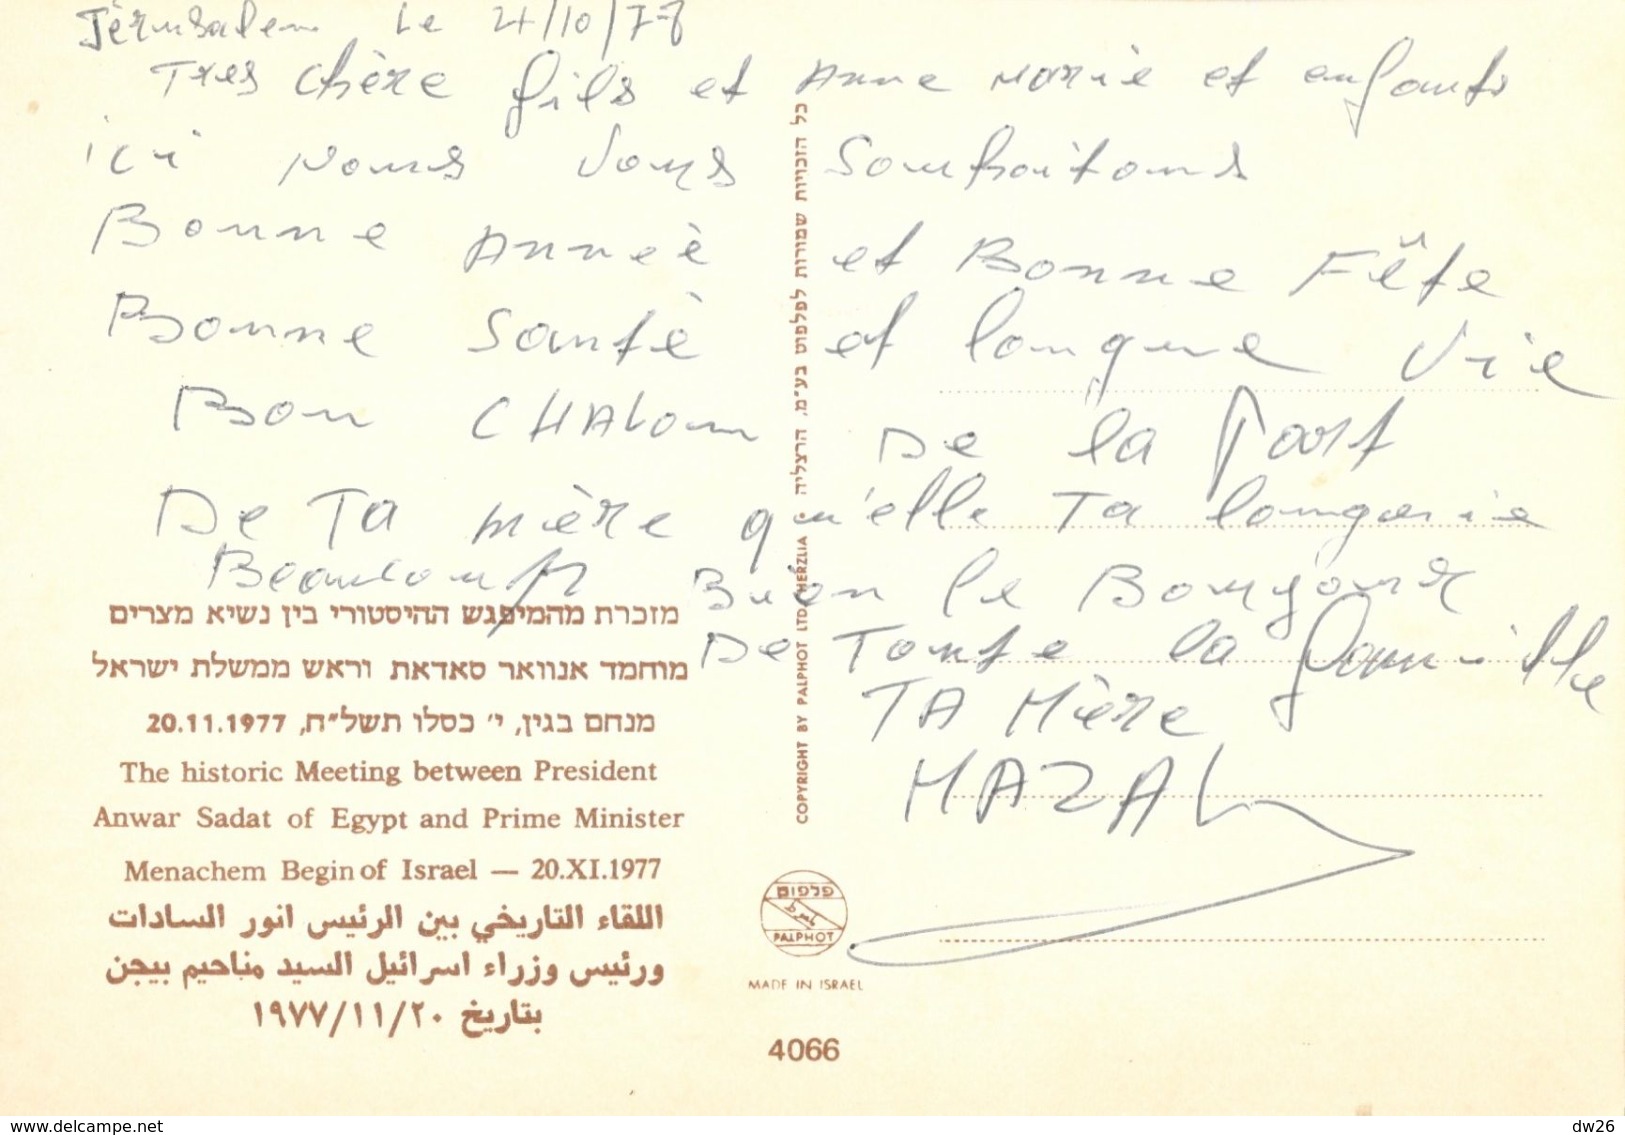 Jèrusalem Le 4/10/78
Tres chère fils et Anne Marie et enfants
ici nous vous souhaitons
Bonne Anneè et Bonne Fête
Bonne Santè et longue vie
Bon CHALom De la Part
De TA mère qu'elle Ta
Beaucoup Bien le Bonjour
De Toute la famille
TA Mère
MAZAL
מזכרת מהמיפגש ההיסטורי בין נשיא מצרים
מוחמד אנוואר סאדאת וראש ממשלת ישראל
מנחם בגין, י׳ כסלו תשל״ח, 20.11.1977
The historic Meeting between President
Anwar Sadat of Egypt and Prime Minister
Menachem Begin of Israel — 20.XI.1977
اللقاء التاريخي بين الرئيس انور السادات
ورئيس وزراء اسرائيل السيد مناحيم بيجن
بتاريخ ١٩٧٧/١١/٢٠
COPYRIGHT BY PALPHOT LTD. HERZLIA • כל הזכויות שמורות לפלפוט בע״מ, הרצליה
פלפוט
PALPHOT
MADE IN ISRAEL
4066
www.delcampe.net
dw26